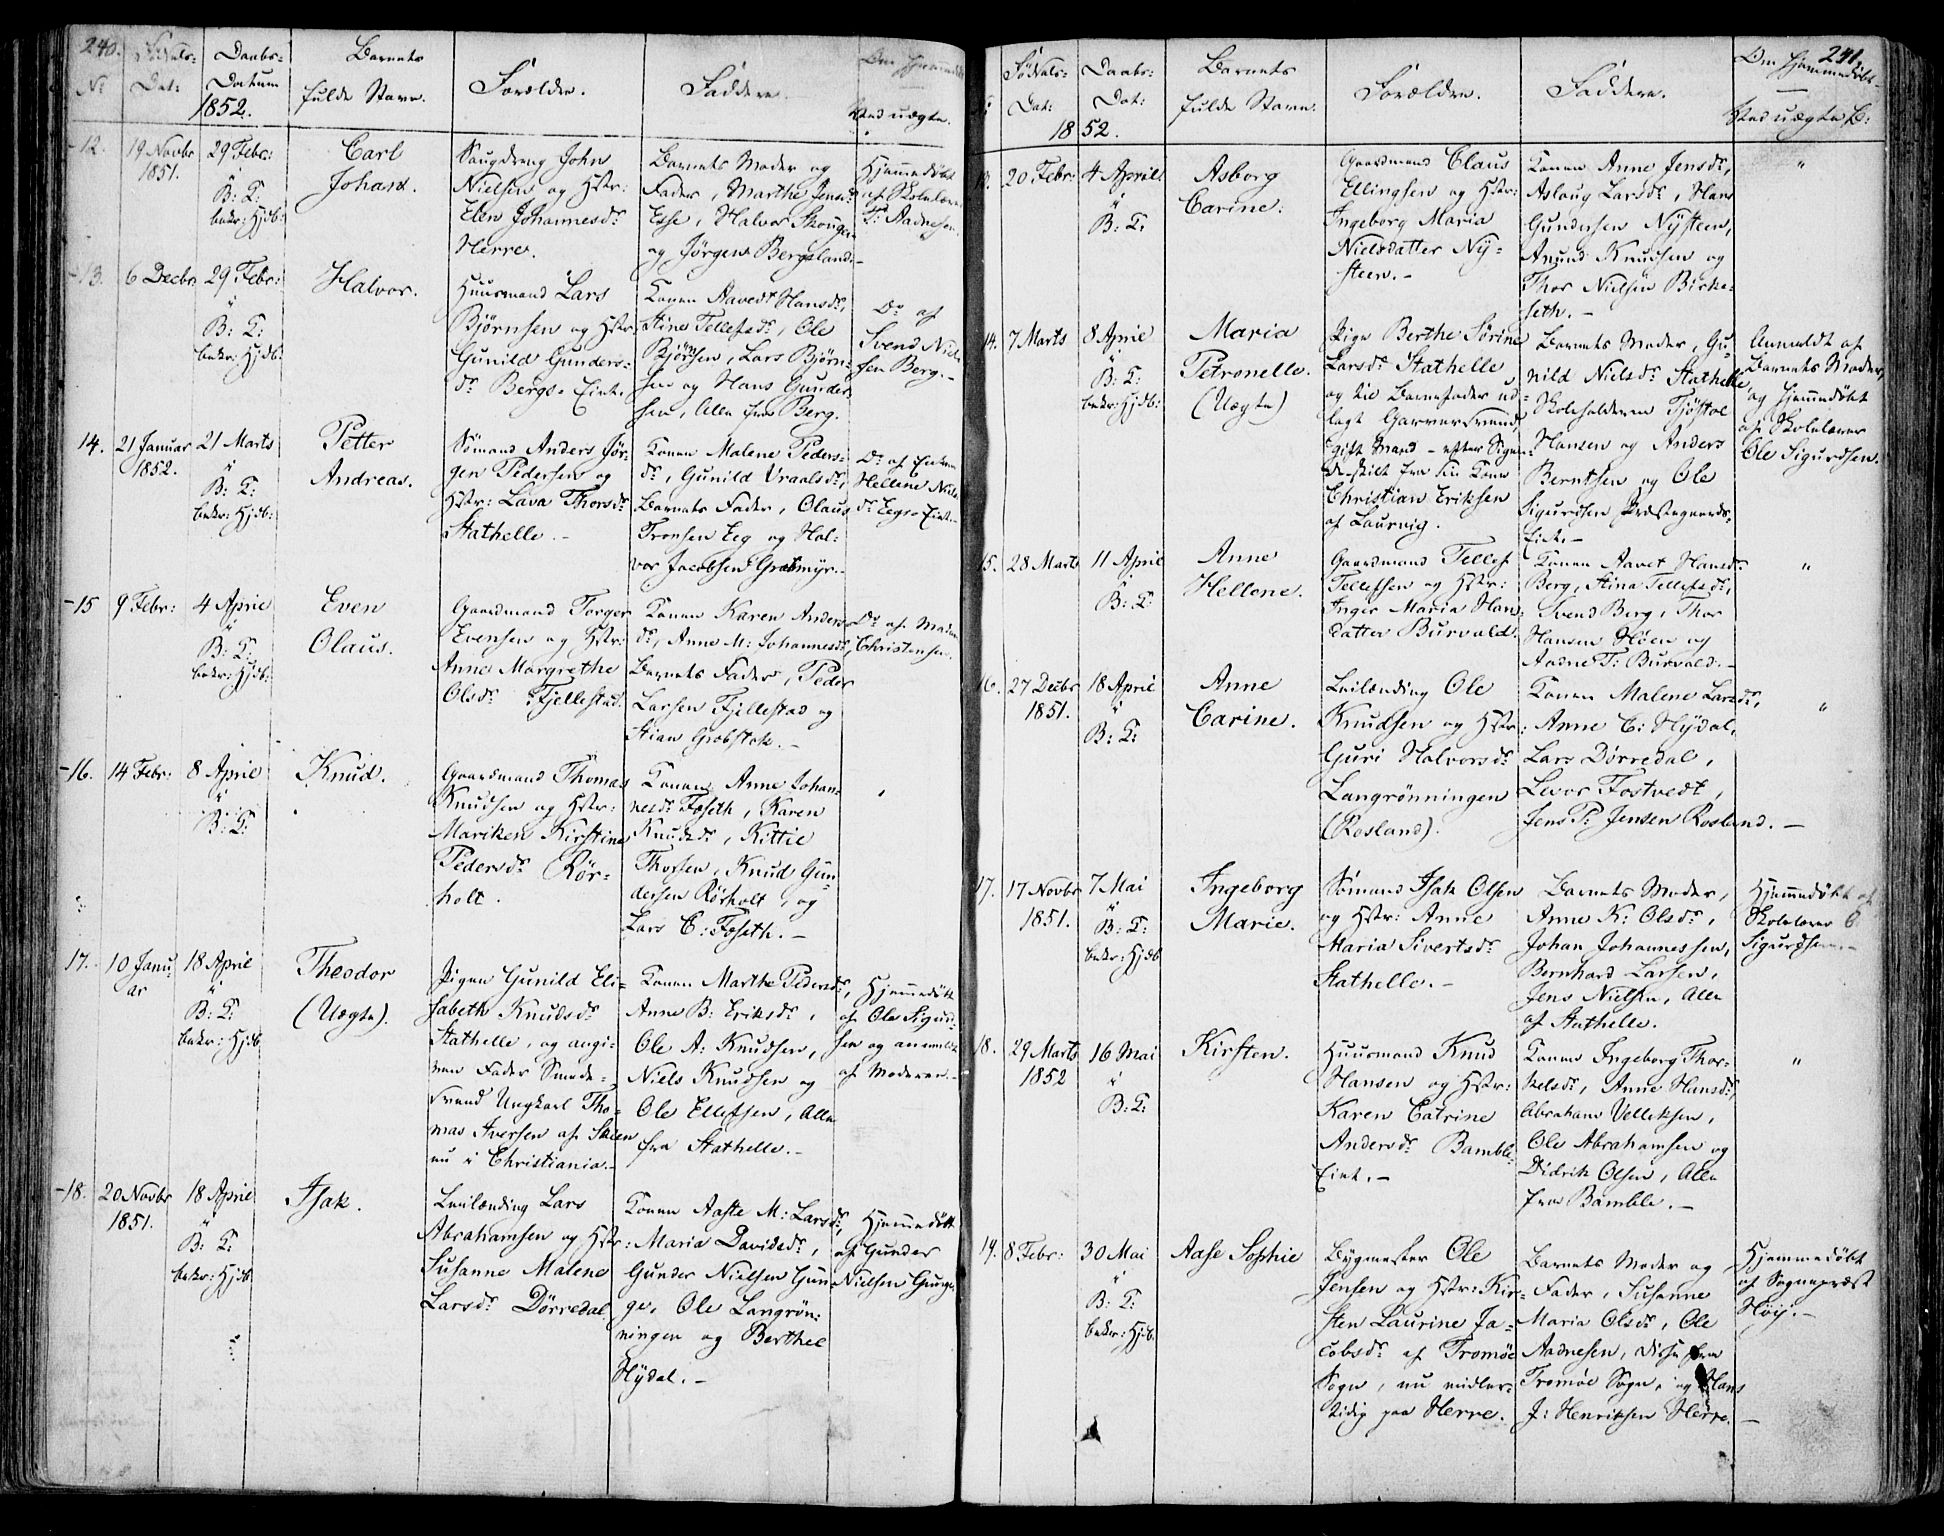 240.
No
Fødsels-
Dat:
Daabs-
Datum
1852.
Barnets
fulde Navn.
Forældre.
Faddere.
Om hjemmedøbt
Sted uægte.
12.
19 Novbr
1851.
29 Febr:
i
B: K:
bekr: Hjdb:
Carl
Johan.
Saugdreng John
Nielsen og Hstr:
Elen Johannesdr
Herre.
Barnets Moder og
Fader, Marthe Jensdr
Esse, Halvor Skougen
og Jørgen Bergsland.-
Hjemmedøbt
af Skolelærer
T: Aadnesen.
13.
6 Decbr
29 Febr:
i
B: K:
bekr: Hjdb:
Halvor.
Huusmand Lars
Bjørnsen og Hstr:
Gunild Gunders-
dr Bergs-Eiet.
Konen Aavedt Hansdr,
Stine Tellefsdr, Ole
Bjørnsen, Lars Bjørn-
sen og Hans Gunder-
sen, Alle fra Berg.
Do af
Svend Niel-
sen Berg.-
14.
21 Januar
1852.
21 Marts
i
B: K:
bekr: Hjdb:
Petter
Andreas.
Sömand Anders Jør-
gen Pedersen og
Hstr: Lava Thorsdr
Stathelle.-
Konen Malene Peders-
dr, Gunild Vraalsdr,
Barnets Fader, Olaus
Tronsen Eeg og Hal-
vor Jacobsen Grobmyr.-
Do af
Hellene Niels-
dr Eegs-Eiet.-
15
9 Febr:
4 April
i
B: K:
bekr: Hjdb:
Even
Olaus.
Gaardmand Torger
Evensen og Hstr:
Anne Margrethe
Olsdr Fjellestad.
Konen Karen Anders-
dr, Anne M: Johannesdr,
Barnets Fader, Peder
Larsen Fjellestad og
Stian Grobstok.-
Do af Madam
Christensen.
16.
14 Febr:
8 April
i
B: K:
Knud.
Gaardmand Thomas
Knudsen og Hstr:
Mariken Kirstine
Pedersdr Rör-
holt.
Konen Anne Johan-
nesdr Foseth, Karen
Knudsdr, Kittil
Thorsen, Knud Gun-
dersen Rörholt, og
Lars C: Foseth.-
"
17.
10 Janu
ar
18 April
i
B: K:
bekr: Hjdb
Theodor
(Uægte).
Pigen Gunild Eli-
sabeth Knudsdr
Stathelle, og angi-
ven Fader Smede-
svend Ungkarl Tho-
mas Iversen af Skien
nu i Christiania.-
Konen Marthe Pedersdr,
Anne B: Eriksdr,
Ole A: Knudsen,
Niels Knudsen og
Ole Ellefsen, Alle
fra Stathelle.-
Hjemmedöbt
af Ole Sigurd-
sen og anmeldt
af Moderen.-
18.
20 Novbr
1851.
18 April
i
B: K:
bekr: Hjdb
Isak.
Leilænding Lars
Abrahamsen og Hstr:
Susanne Malene
Larsdr Dörredal
Konen Aaste M: Larsdr,
Maria Davidsdr,
Gunder Nielsen Gun-
ge, Ole Langrön-
ningen og Berthel
Hydal.-
Hjemmedöbt
af Gunder
Nielsen Gunge.
241.
Fødsels-
Dat:
Daabs-
Dat:
1852.
Barnets
fulde Navn.
Forældre.
Faddere.
Om hjemmedöbt-
Sted uægte B:
13.
20 Febr:
4 April
i
B: K:
Asborg
Carine:
Gaardmand Claus
Ellingsen og Hstr:
Ingeborg Maria
Nielsdatter Ny-
steen.-
Konen Anne Jensdr,
Aslaug Larsdr, Hans
Gundersen Nysteen,
Anund Knudsen og
Thor Nielsen Birke-
seth.-
"
14.
7 Marts
8 April
i
B: K:
bekr: Hjdb:
Maria
Petronelle.
(Uægte)
Pige Berthe Sörine
Larsdr Stathelle
og til Barnefader ud-
lagt Garversvend,
gift Mand - efter Sigen-
de skilt fra sin Kone
Christian Eriksen
af Laurvig.
Barnets Moder, Gu-
nild Nielsdr Stathelle,
Skoleholderne Tjöstol
Hansen og Anders
Berntsen og Ole
Sigurdsen Præstegaards-
Eiet.-
Anmeldt af
Barnets Moder,
og hjemmedöbt
af Skolelærer
Ole Sigurdsen.
15.
28 Marts
11 April
i
B: K:
Anne
Hellene.
Gaardmand Tellef
Tellefsen og Hstr:
Inger Maria Hans-
datter Burvald.
Konen Aavet Hansdr
Berg, Stina Tellefsdr,
Svend Berg, Thor
Hansen Höen og
Aadne T: Burvald.-
"
16.
27 Decbr
1851.
18 April
i
B: K:
Anne
Carine.
Leilænding Ole
Knudsen og Hstr:
Guri Halvorsdr
Langrönningen
(Rosland).
Konen Malene Larsdr,
Anne C: Hydal,
Lars Dörredal,
Levor Tostvedt,
Jens P: Jensen Rosland.-
"
17.
17 Novbr
1851.
7 Mai
i
B: K:
bekr: Hjdb
Ingeborg
Marie.
Sömand Isak Olsen
og Hstr: Anne
Maria Sivertsdr
Stathelle.-
Barnets Moder,
Anne K: Olsdr,
Johan Johannessen,
Bernhard Larsen,
Jens Nielsen, Alle
af Stathelle.
Hjemmedöbt af
Skolelærer O
Sigurdsen.-
18.
29 Marts
1852
16 Mai
i
B: K:
Kirsten.
Huusmand Knud
Hansen og Hstr:
Karen Catrine
Andersdr Bamble-
Eiet.-
Konen Ingeborg Thor-
kelsdr, Anne Hansdr,
Abraham Velleksen,
Ole Abrahamsen og
Didrik Olsen, Alle
fra Bamble.-
"
19.
8 Febr:
30 Mai
i
B: K:
bekr: Hjdb.
Aase Sophie
Bygmester Ole
Jensen og Hstr: Kir-
sten Laurine Ja-
cobsdr af Tromöe
Sogn, nu midler-
tidig paa Herre.
Barnets Moder og
Fader, Susanne
Maria Olsdr, Ole
Aadnesen, disse fra
Tromöe Sogn, og Hans
J: Henriksen Herre.-
Hjemmedöbt
af Sognepræst
Höij.-